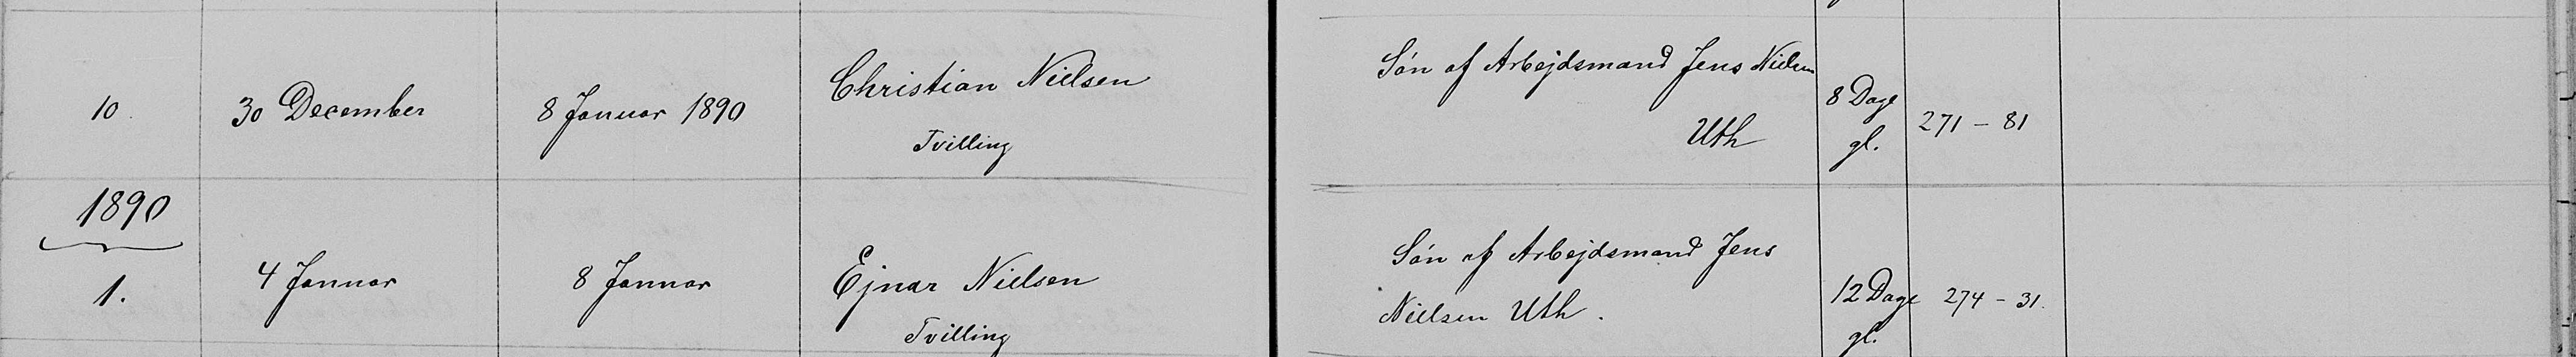 10. 30 December 8 Januar 1890 Christian Nielsen Tvilling Søn af Arbejdsmand Jens Nielsen Uth 8 Dage gl. 271 - 81
1890
1. 4 Januar 8 Januar Ejnar Nielsen Tvilling Søn af Arbejdsmand Jens Nielsen Uth. 12 Dage gl. 274 - 31.